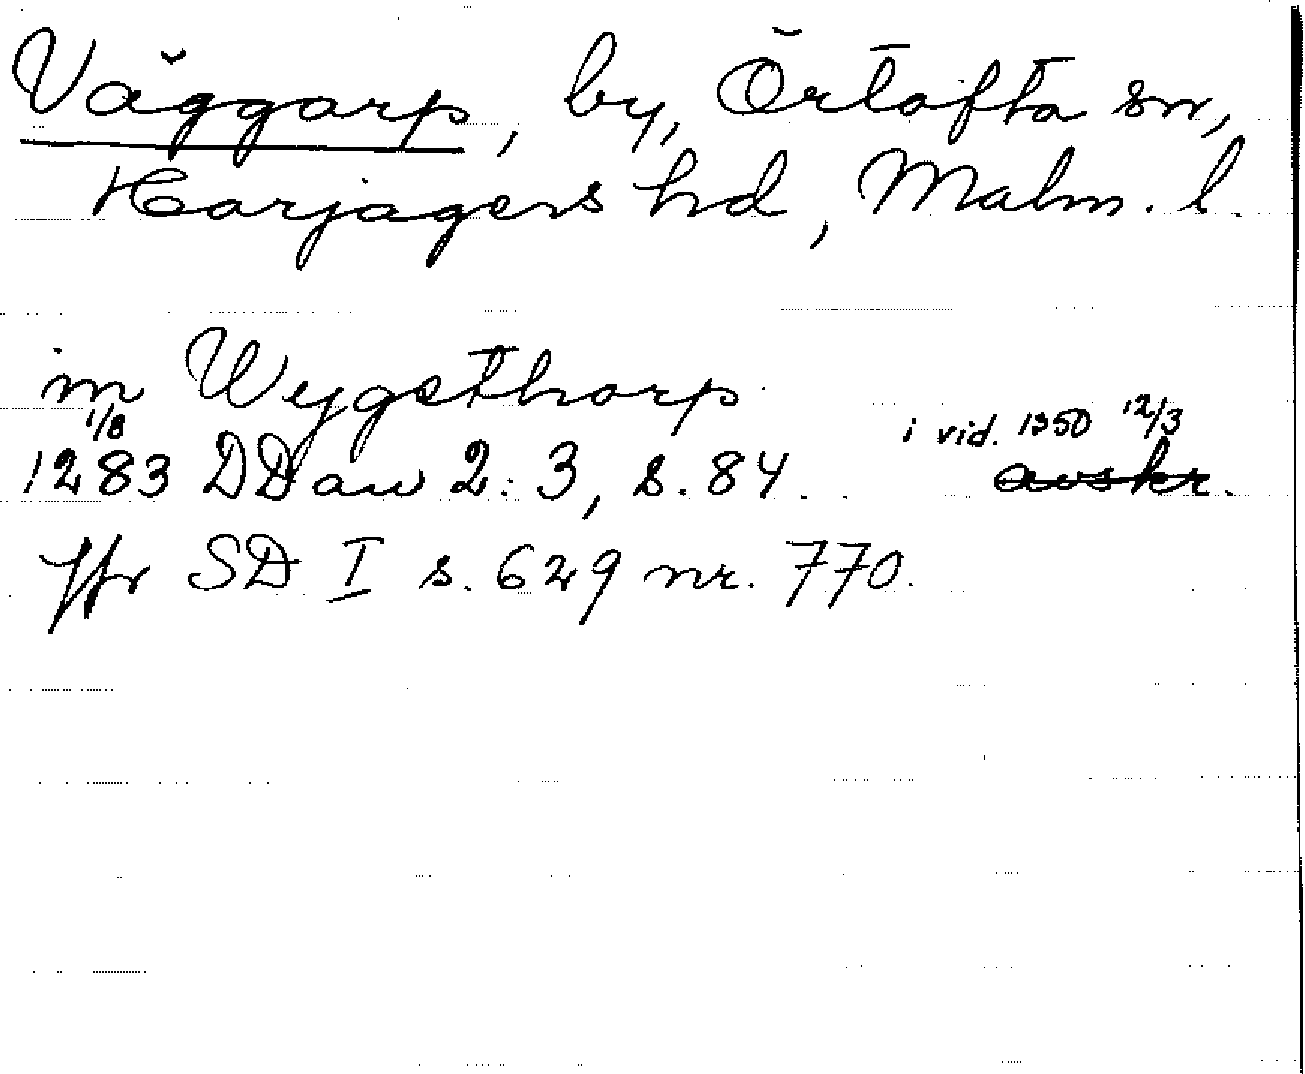 Väggarp, by, Örtofta sn,
Harjagers hd, Malm. l.
in Wygsthorp
1/8
i vid. 1350 12/3
1283 DD aw 2: 3, s. 84. avskr.
Jfr SD I s. 629 nr. 770.